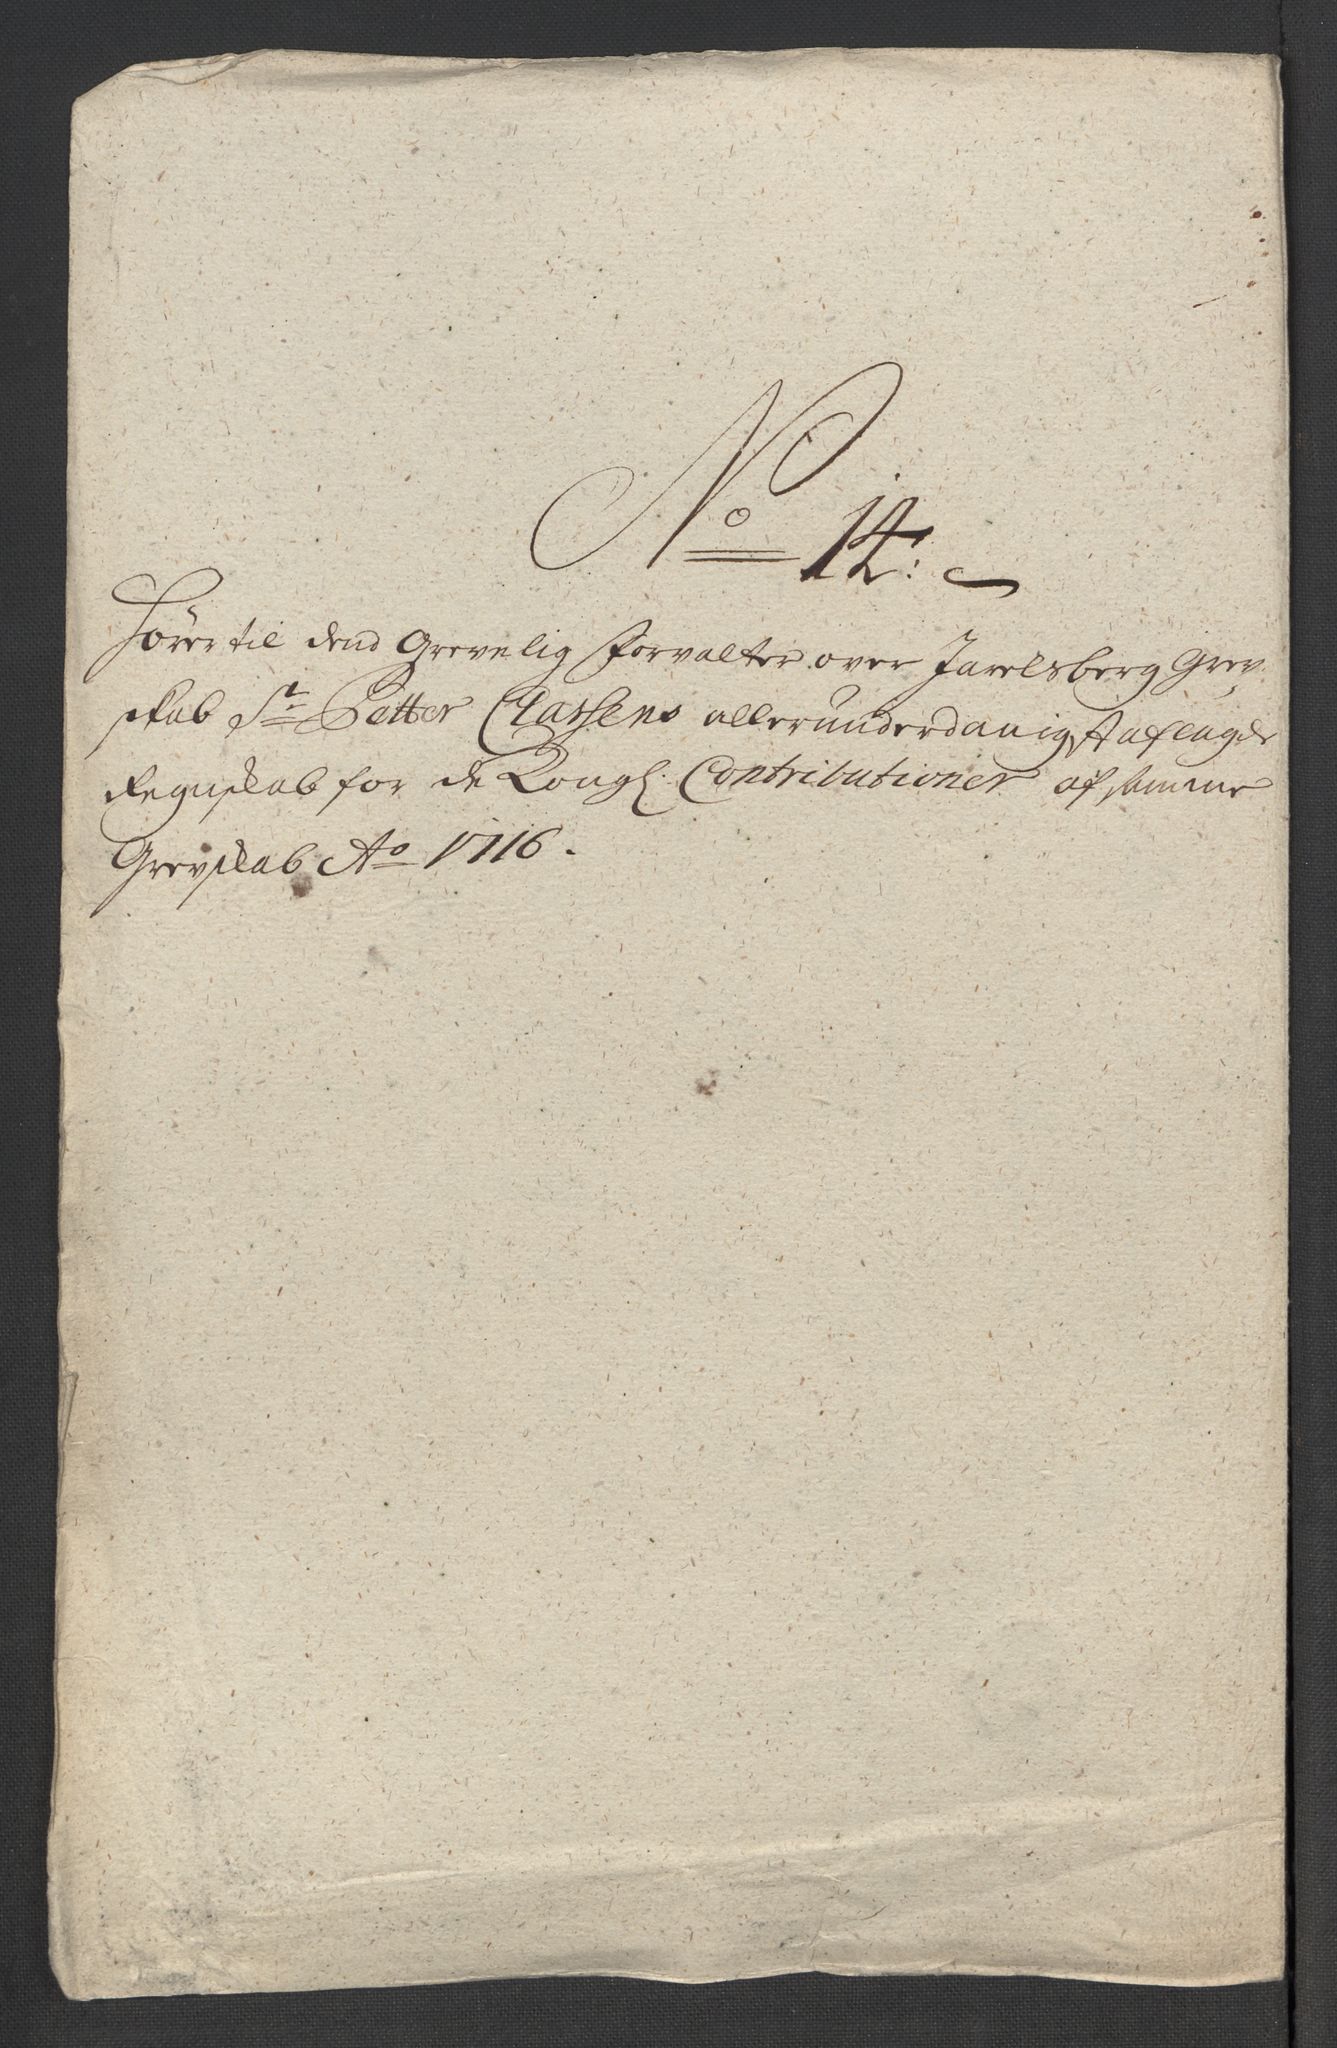 No 14:
Hører til dend Grevelig Forvalter over Jarelsberg Grev,
skab Sr Petter Classens allerunderdanigst aflagde
Regnskab for de Kongl: Contributioner af samme
Grevskab Ao 1716.